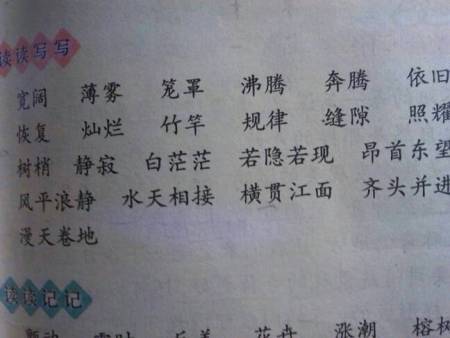 读读写写
宽阔 薄雾 笼罩 沸腾 奔腾 依旧
恢复 灿烂 竹竿 规律 缝隙 照耀
树梢 静寂 白茫茫 若隐若现 昂首东望
风平浪静 水天相接 横贯江面 齐头并进
漫天卷地
读读记记
颤动 涨潮 榕树